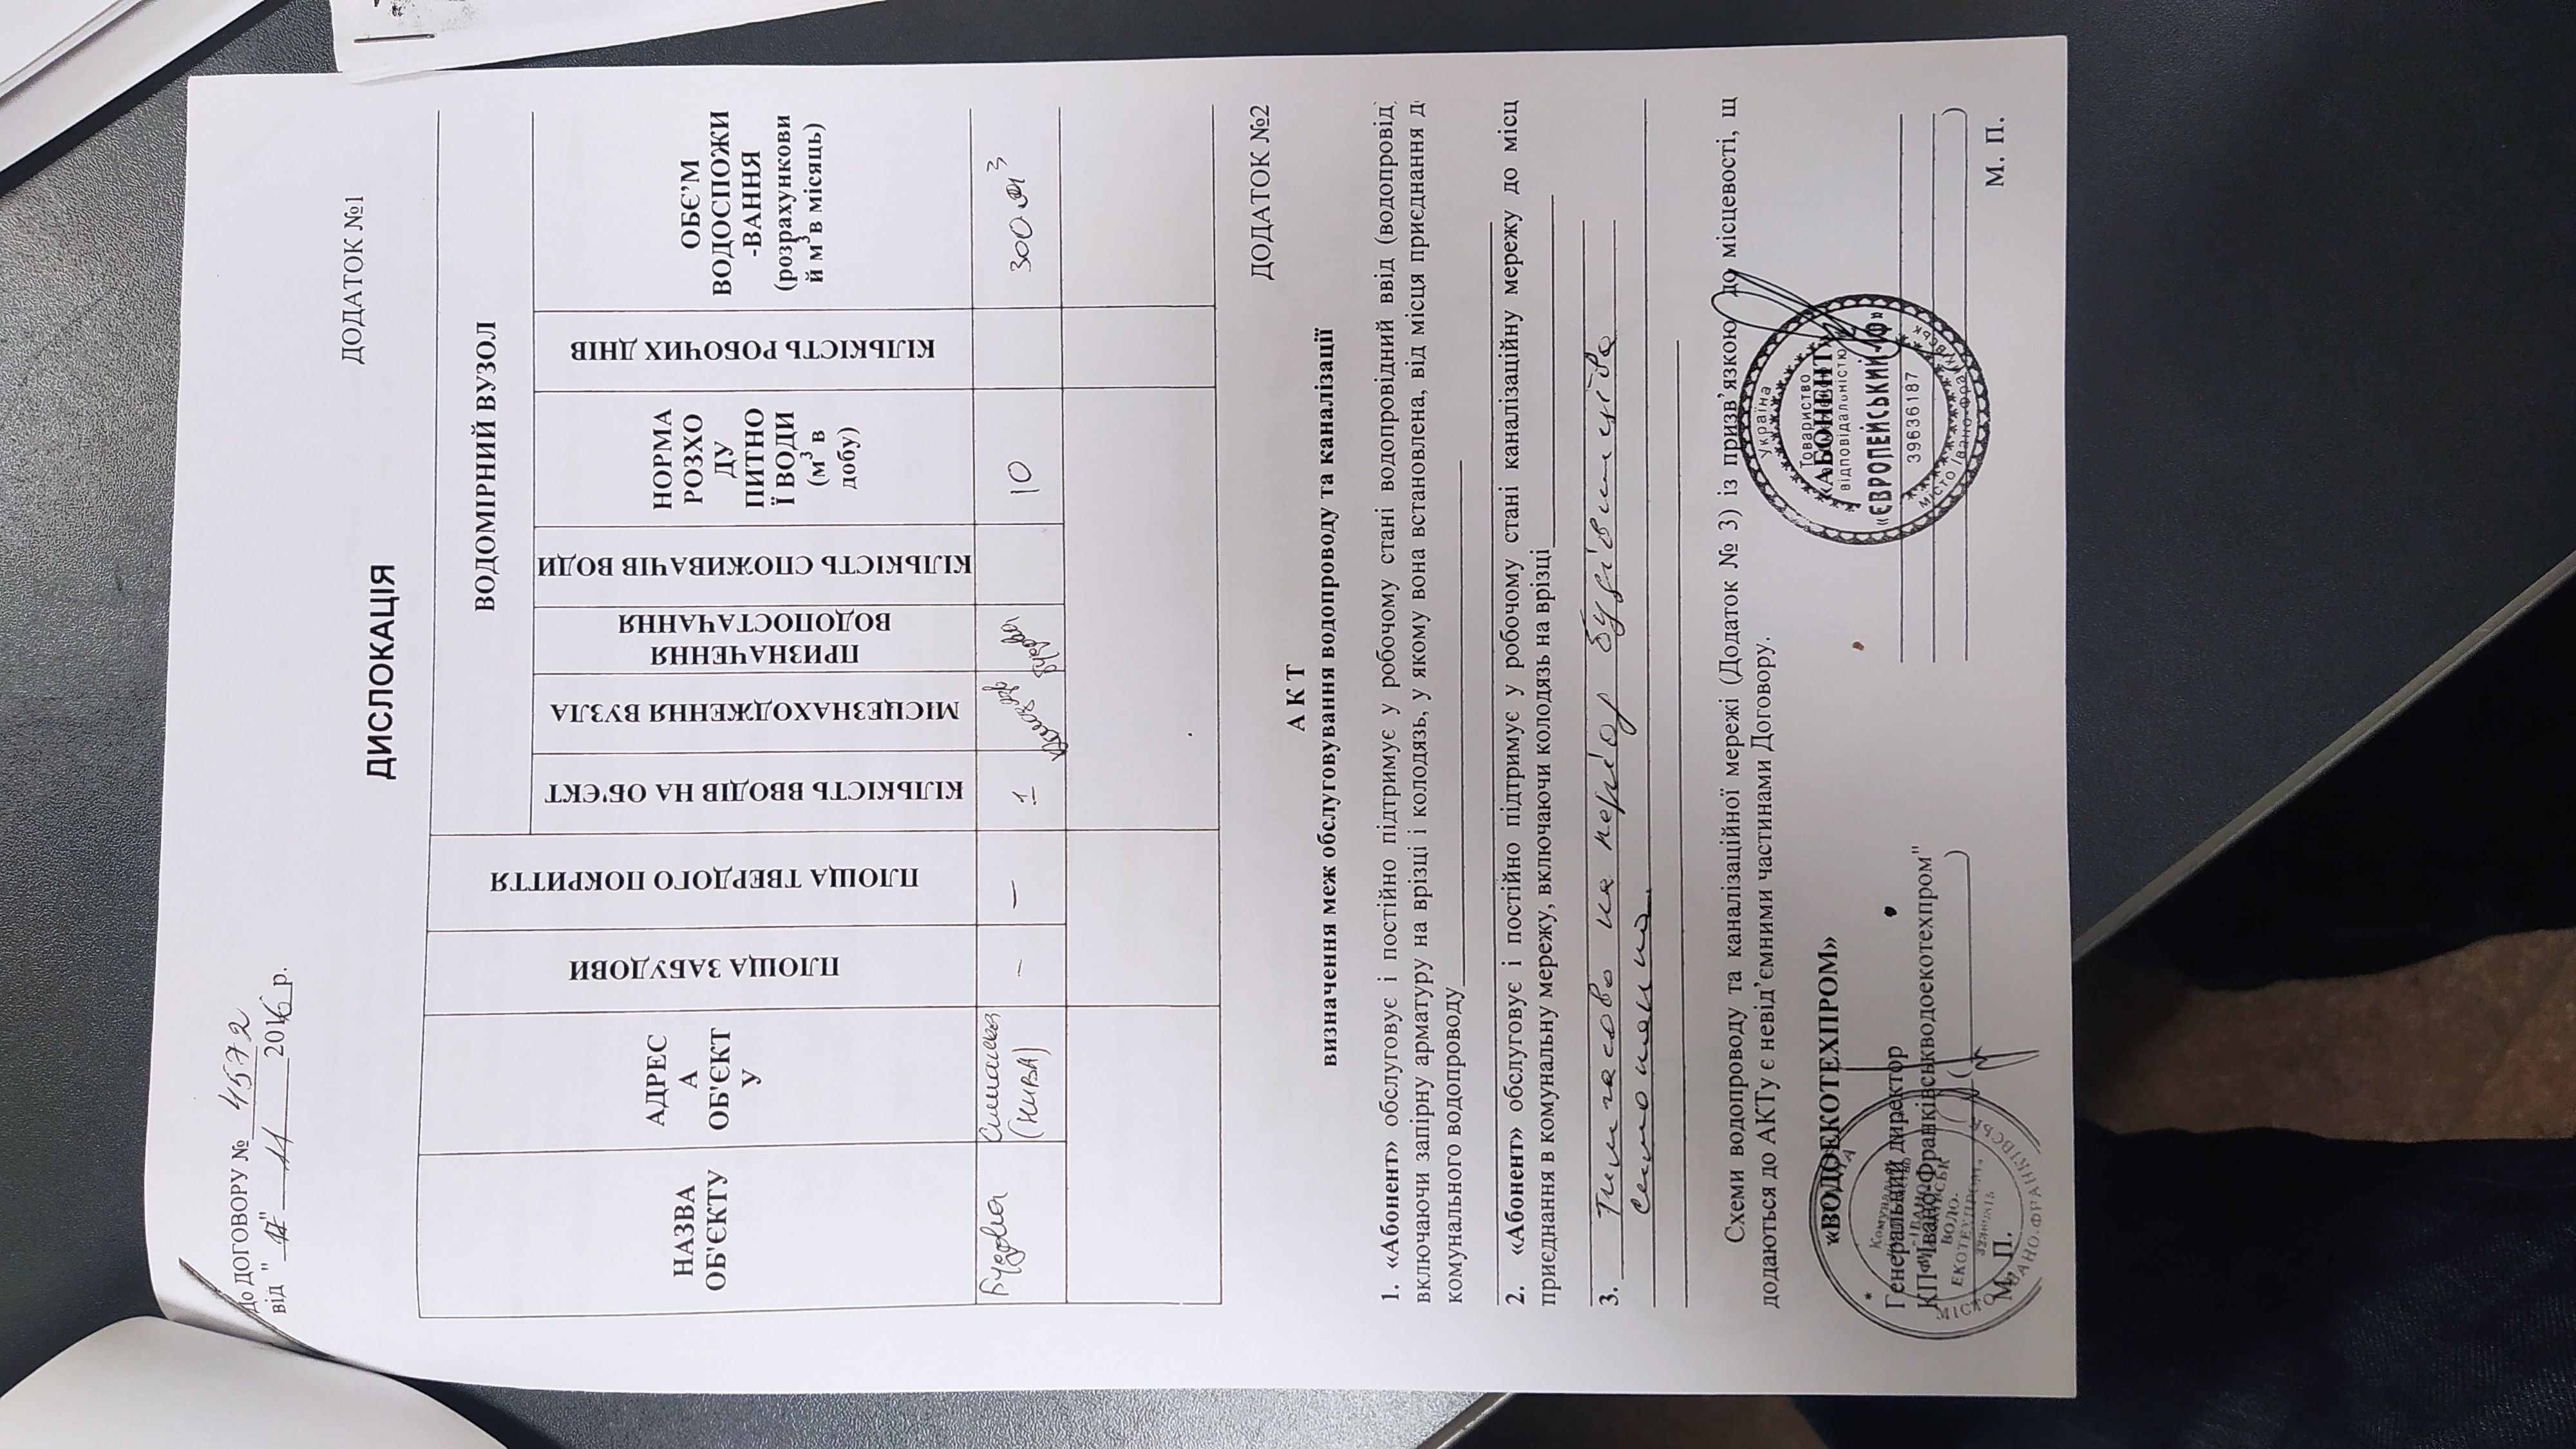 До ДОГОВОРУ № 4572
від "17" 11 2016 р.
ДОДАТОК №1
ДИСЛОКАЦІЯ
НАЗВА
ОБ'ЄКТУ
АДРЕС
А
ОБ'ЄКТ
У
ПЛОЩА ЗАБУДОВИ
ПЛОЩА ТВЕРДОГО ПОКРИТТЯ
ВОДОМІРНИЙ ВУЗОЛ
КІЛЬКІСТЬ ВВОДІВ НА ОБ'ЄКТ
МІСЦЕЗНАХОДЖЕННЯ ВУЗЛА
ПРИЗНАЧЕННЯ
ВОДОПОСТАЧАННЯ
КІЛЬКІСТЬ СПОЖИВАЧІВ ВОДИ
НОРМА
РОЗХО
ДУ
ПИТНО
Ї ВОДИ
(м³ в
добу)
КІЛЬКІСТЬ РОБОЧИХ ДНІВ
ОБЄ’М
ВОДОСПОЖИ
-ВАННЯ
(розрахункови
й м³в місяць)
Будова
(НИВА)
–
–
1
Колодязь
Будова
10
300 м³
ДОДАТОК №2
А К Т
визначення меж обслуговування водопроводу та каналізації
1. «Абонент» обслуговує і постійно підтримує у робочому стані водопровідний ввід (водопровід
включаючи запірну арматуру на врізці і колодязь, у якому вона встановлена, від місця приєднання д
комунального водопроводу
2. «Абонент» обслуговує і постійно підтримує у робочому стані каналізаційну мережу до місц
приєднання в комунальну мережу, включаючи колодязь на врізці
3. Тимчасово на період будівництва
Схеми водопроводу та каналізаційної мережі (Додаток № 3) із призв’язкою до місцевості, щ
додаються до АКТу є невід’ємними частинами Договору.
«ВОДОЕКОТЕХПРОМ»
Генеральний директор
КП "Івано-Франківськводоекотехпром"
( )
М. П.
МІСТО ІВАНО-ФРАНКІВСЬК
«АБОНЕНТ»
Україна
Товариство
відповідальністю
«ЄВРОПЕЙСЬКИЙ-ІФ»
39636187
місто Івано-Франківськ
)
М. П.